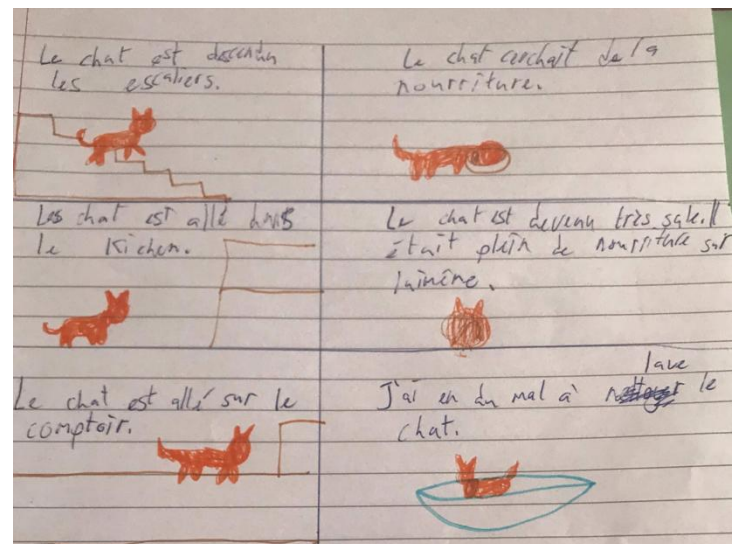 Le chat est descendu
les escaliers.
Les chat est allé dans
le Kichen.
Le chat est allé sur le
comptoir.
Le chat cerchait de la
nourriture.
Le chat est devenu très sale. Il
était plein de nourriture sur
J'ai eu du mal à lave le
chat.